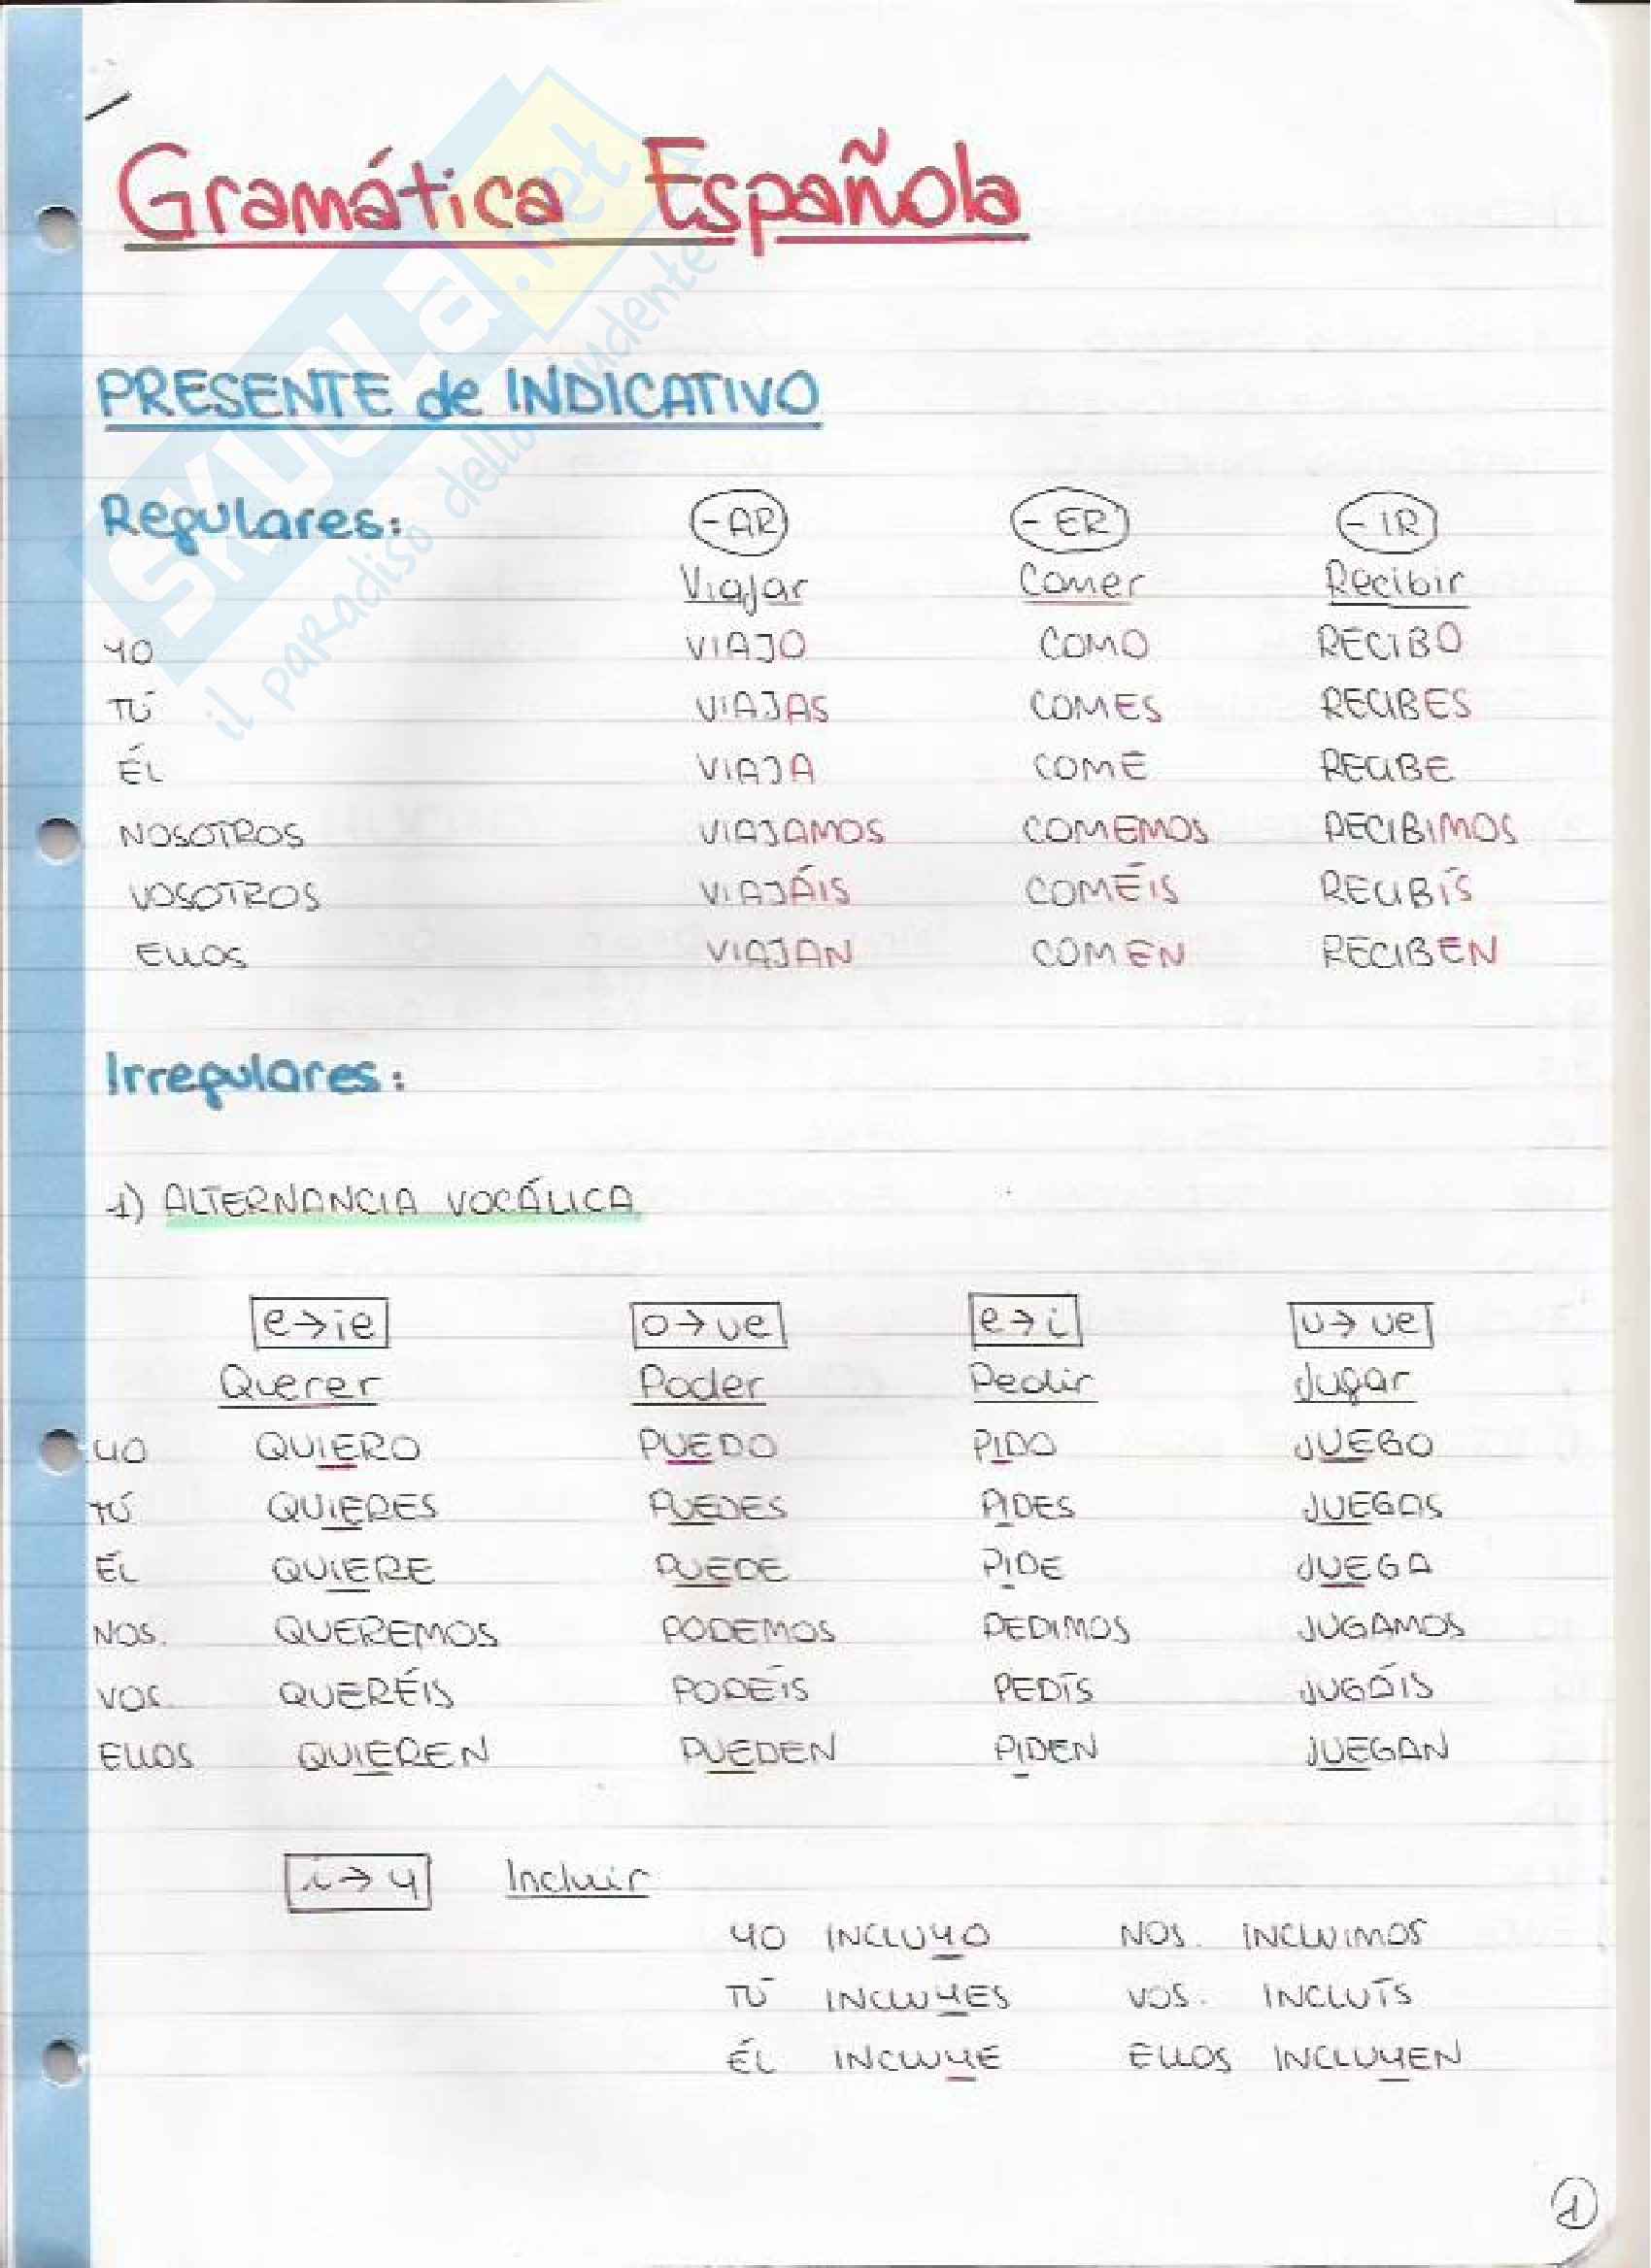 Gramática Española
SKUOLA.net
il paradiso dello studente
PRESENTE de INDICATIVO
Regulares: -AR -ER -IR
Viajar Comer Recibir
YO VIAJO COMO RECIBO
TÚ VIAJAS COMES RECIBES
ÉL VIAJA COME RECIBE
NOSOTROS VIAJAMOS COMEMOS RECIBIMOS
VOSOTROS VIAJÁIS COMÉIS RECIBÍS
ELLOS VIAJAN COMEN RECIBEN
Irregulares:
1) ALTERNANCIA VOCÁLICA
e→ie o→ue e→i u→ue
Querer Poder Pedir Jugar
YO QUIERO PUEDO PIDO JUEGO
TÚ QUIERES PUEDES PIDES JUEGAS
ÉL QUIERE PUEDE PIDE JUEGA
NOS. QUEREMOS PODEMOS PEDIMOS JUGAMOS
VOS. QUERÉIS PODÉIS PEDÍS JUGÁIS
ELLOS QUIEREN PUEDEN PIDEN JUEGAN
i→y Incluir
YO INCLUYO NOS. INCLUIMOS
TÚ INCLUYES VOS. INCLUÍS
ÉL INCLUYE ELLOS INCLUYEN
1